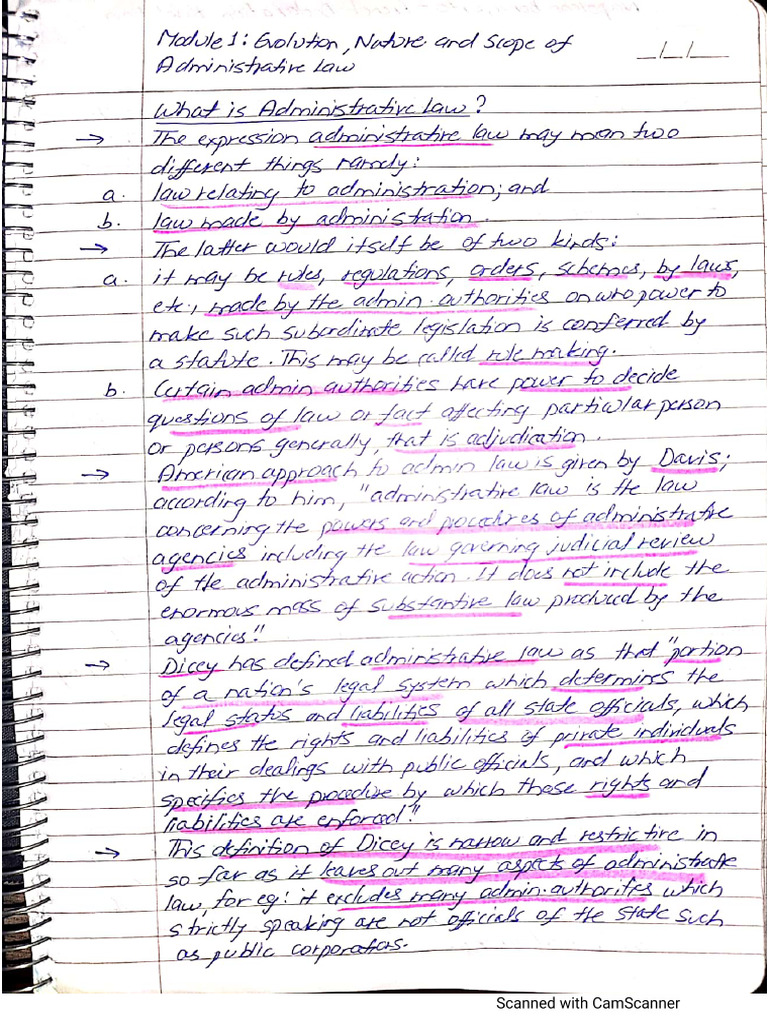 Module 1: Evolution, Nature and Scope of
Administrative Law
_/_/_
What is Administrative Law?
→ The expression administrative law may mean two
different things namely:
a. law relating to administration; and
b. law made by administation.
→ The latter would itself be of two kinds:
a. it may be rules, regulations, orders, schemes, by laws,
etc., made by the admin. authorities on who power to
make such subordinate legislation is conferred by
a statute. This may be called rule making.
b. Certain admin authorities have power to decide
questions of law or fact affecting particular person
or persons generally, that is adjudication.
→ American approach to admin law is given by Davis;
according to him, "administrative law is the law
concerning the powers and procedures of administrative
agencies including the law governing judicial review
of the administrative action. It does not include the
enormous mass of substantive law produced by the
agencies."
→ Dicey has defined administrative law as that "portion
of a nation's legal system which determines the
legal status and liabilities of all state officials, which
defines the rights and liabilities of private individuals
in their dealings with public officials, and which
specifies the procedure by which those rights and
liabilities are enforced."
→ This definition of Dicey is narrow and restrictive in
so far as it leaves out many aspects of administrate
law, for eg: it excludes many admin. authorites which
strictly speaking are not officials of the state such
as public corporations.
Scanned with CamScanner